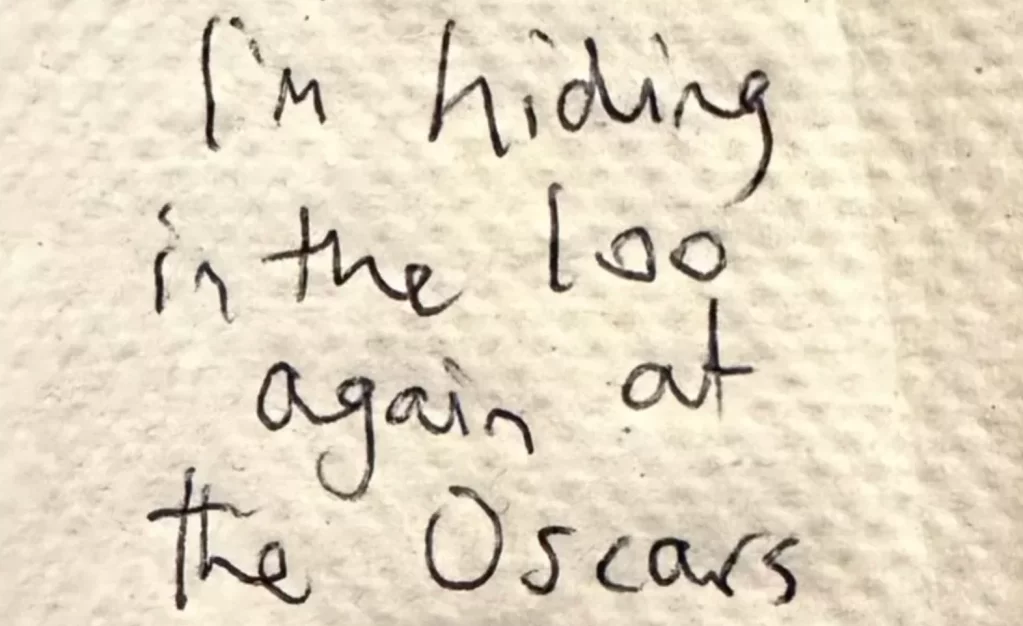 I'm hiding
in the loo
again at
the Oscars